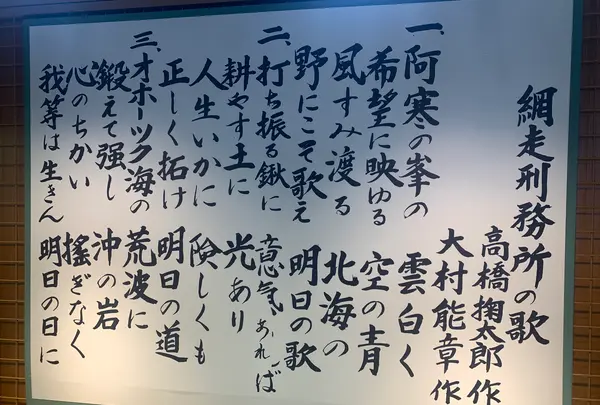 網走刑務所の歌
高橋掬太郎 作
大村能章 作
一、阿寒の峯の 雲白く
希望に映ゆる 空の青
風すみ渡る 北海の
野にこそ歌え 明日の歌
二、打ち振る鍬に 意気あれば
耕やす土に 光あり
人生いかに 険しくも
正しく拓け 明日の道
三、オホーツク海の 荒波に
鍛えて强し 沖の岩
心のちかい 搖ぎなく
我等は生きん 明日の日に